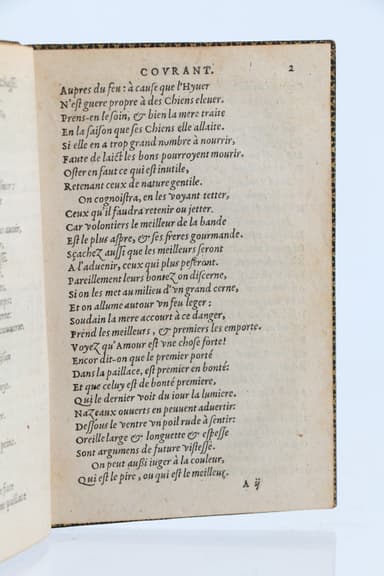 COVRANT. 2
Aupres du feu : à cause que l'Hyuer
N'est guere propre à des Chiens eleuer.
Prens-en le soin, & bien la mere traite
En la saison que ses Chiens elle allaite.
Si elle en a trop grand nombre à nourrir,
Faute de laict les bons pourroyent mourir.
Oster en faut ce qui est inutile,
Retenant ceux de nature gentile.
On cognoistra, en les voyant tetter,
Ceux qu'il faudra retenir ou jetter.
Car volontiers le meilleur de la bande
Est le plus aspre, & ses freres gourmande.
Sçachez aussi que les meilleurs seront
A l'aduenir, ceux qui plus peseront.
Pareillement leurs bontez on discerne,
Si on les met au milieu d'vn grand cerne,
Et on allume autour vn feu leger ;
Soudain la mere accourt à ce danger,
Prend les meilleurs, & premiers les emporte.
Voyez qu'Amour est vne chose forte!
Encor dit-on que le premier porté
Dans la paillace, est premier en bonté:
Et que celuy est de bonté premiere,
Qui le dernier voit du iour la lumiere.
Nazeaux ouuerts en peuuent aduertir:
Dessous le ventre vn poil rude à sentir:
Oreille large & longuette & espesse
Sont argumens de future vistesse.
On peut aussi iuger à la couleur,
Qui est le pire, ou qui est le meilleur.
A ij